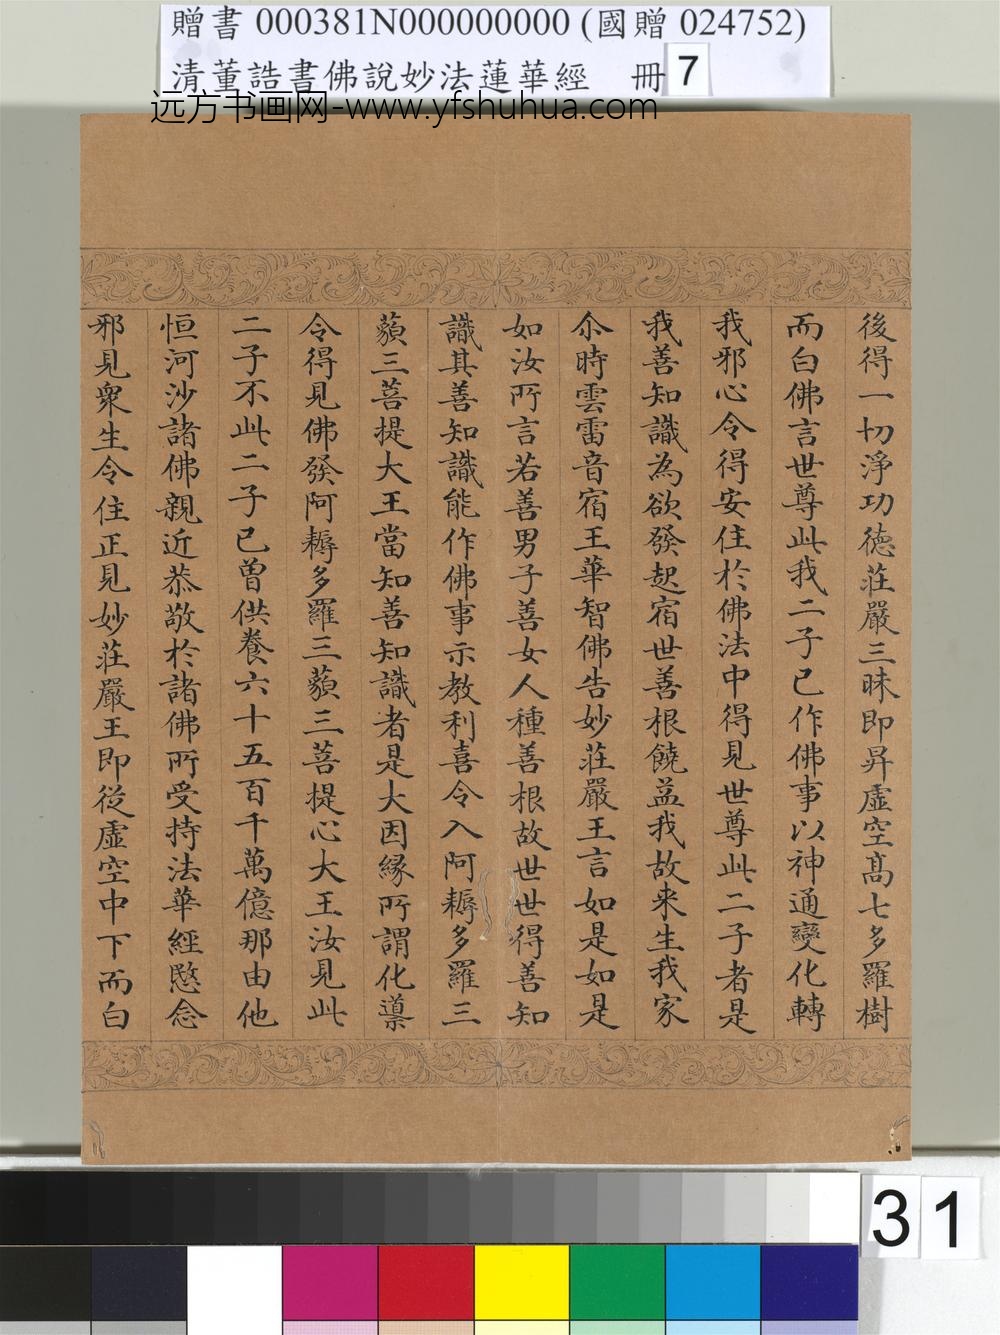 贈書 000381N000000000 (國贈 024752)
清董誥書佛說妙法蓮華經 冊 7
远方书画网-www.yfshuhua.com
後得一切淨功德莊嚴三昧即昇虛空高七多羅樹
而白佛言世尊此我二子已作佛事以神通變化轉
我邪心令得安住於佛法中得見世尊此二子者是
我善知識為欲發起宿世善根饒益我故来生我家
尒時雲雷音宿王華智佛告妙莊嚴王言如是如是
如汝所言若善男子善女人種善根故世世得善知
識其善知識能作佛事示教利喜令入阿耨多羅三
藐三菩提大王當知善知識者是大因緣所謂化導
令得見佛發阿耨多羅三藐三菩提心大王汝見此
二子不此二子已曾供養六十五百千萬億那由他
恒河沙諸佛親近恭敬於諸佛所受持法華經愍念
邪見衆生令住正見妙莊嚴王即從虛空中下而白
31